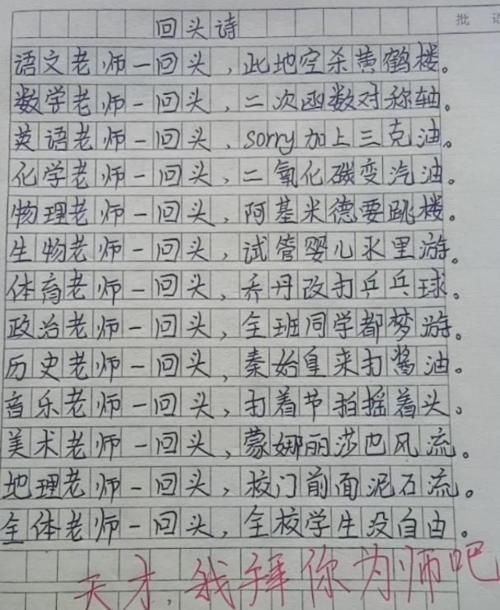 批
回头诗
语文老师一回头，此地空杀黄鹤楼。
数学老师一回头，二次函数对称轴。
英语老师一回头，sorry加上三克油。
化学老师一回头，二氧化碳变汽油。
物理老师一回头，阿基米德要跳楼。
生物老师一回头，试管婴儿水里游。
体育老师一回头，乔丹改打乒乓球。
政治老师一回头，全班同学都梦游。
历史老师一回头，秦始皇来打酱油。
音乐老师一回头，打着节拍摇着头。
美术老师一回头，蒙娜丽莎巴风流。
地理老师一回头，校门前面泥石流。
全体老师一回头，全校学生没自由。
天才，我拜你为师吧